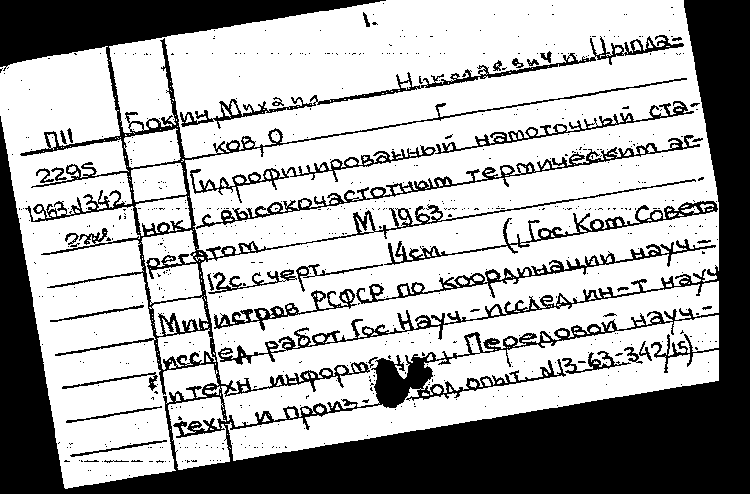 1.
Бокин, Михаил Николаевич и Цыпла=
ПII
ков, О Г
2295
Гидрофицированный намоточный ста-
1963.N342
нок с высокочастотным термическим аг-
2 экз.
регатом. М., 1963.
12с. с черт. 14см. (, Гос. Ком. Совета
Министров РСФСР по координации науч.=
исслед. работ. Гос. Науч.-исслед. ин-т науч
и техн. информации, . Передовой науч.-
техн. и произ- вод. опыт. N13-63-342/15).